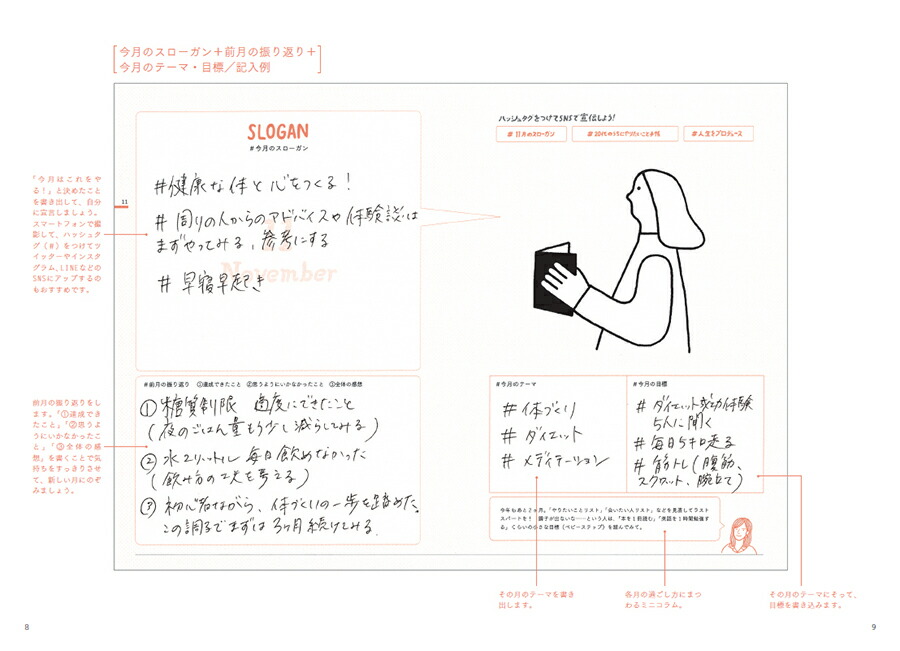 今月のスローガン＋前月の振り返り＋
今月のテーマ・目標／記入例
「今月はこれをや
る！」と決めたこと
を書き出して、自分
に宣言しましょう。
スマートフォンで撮
影して、ハッシュタ
グ（＃）をつけてツ
イッターやインスタ
グラム、LINEなどの
SNSにアップするの
もおすすめです。
11
SLOGAN
#今月のスローガン
#健康な体と心をつくる！
# 周りの人からのアドバイスや体験談は
まずやってみる、参考にする
11
November
# 早寝早起き
ハッシュタグをつけてSNSで宣伝しよう!
# 11月のスローガン
# 20代のうちにやりたいこと手帳
# 人生をプロデュース
前月の振り返りをし
ます。「①達成でき
たこと」「②思うよ
うにいかなかったこ
と」「③全体の感
想」を書くことで気
持ちをすっきりさせ
て、新しい月にのぞ
みましょう。
#前月の振り返り ①達成できたこと ②思うようにいかなかったこと ③全体の感想
① 糖質制限 適度にできたこと
(夜のごはん量もう少し減らしてみる)
② 水2リットル毎日飲めなかった
(飲み方の工夫を考える)
③ 初心者ながら、体づくりの一歩を踏めた。
この調子でまずは3ヶ月続けてみる。
#今月のテーマ
# 体づくり
# ダイエット
# メディテーション
#今月の目標
# ダイエット成功体験
5人に聞く
# 毎日5キロ走る
# 筋トレ(腹筋、
スクワット、腕立て)
今年もあと2ヵ月。「やりたいことリスト」「会いたい人リスト」などを見直してラスト
スパートを！ 調子が出ないな……という人は、「本を1冊読む」「英語を1時間勉強す
る」くらいの小さな目標（ベビーステップ）を組んでみて。
その月のテーマを書き
出します。
各月の過ごし方にまつ
わるミニコラム。
その月のテーマにそって、
目標を書き込みます。
8
9